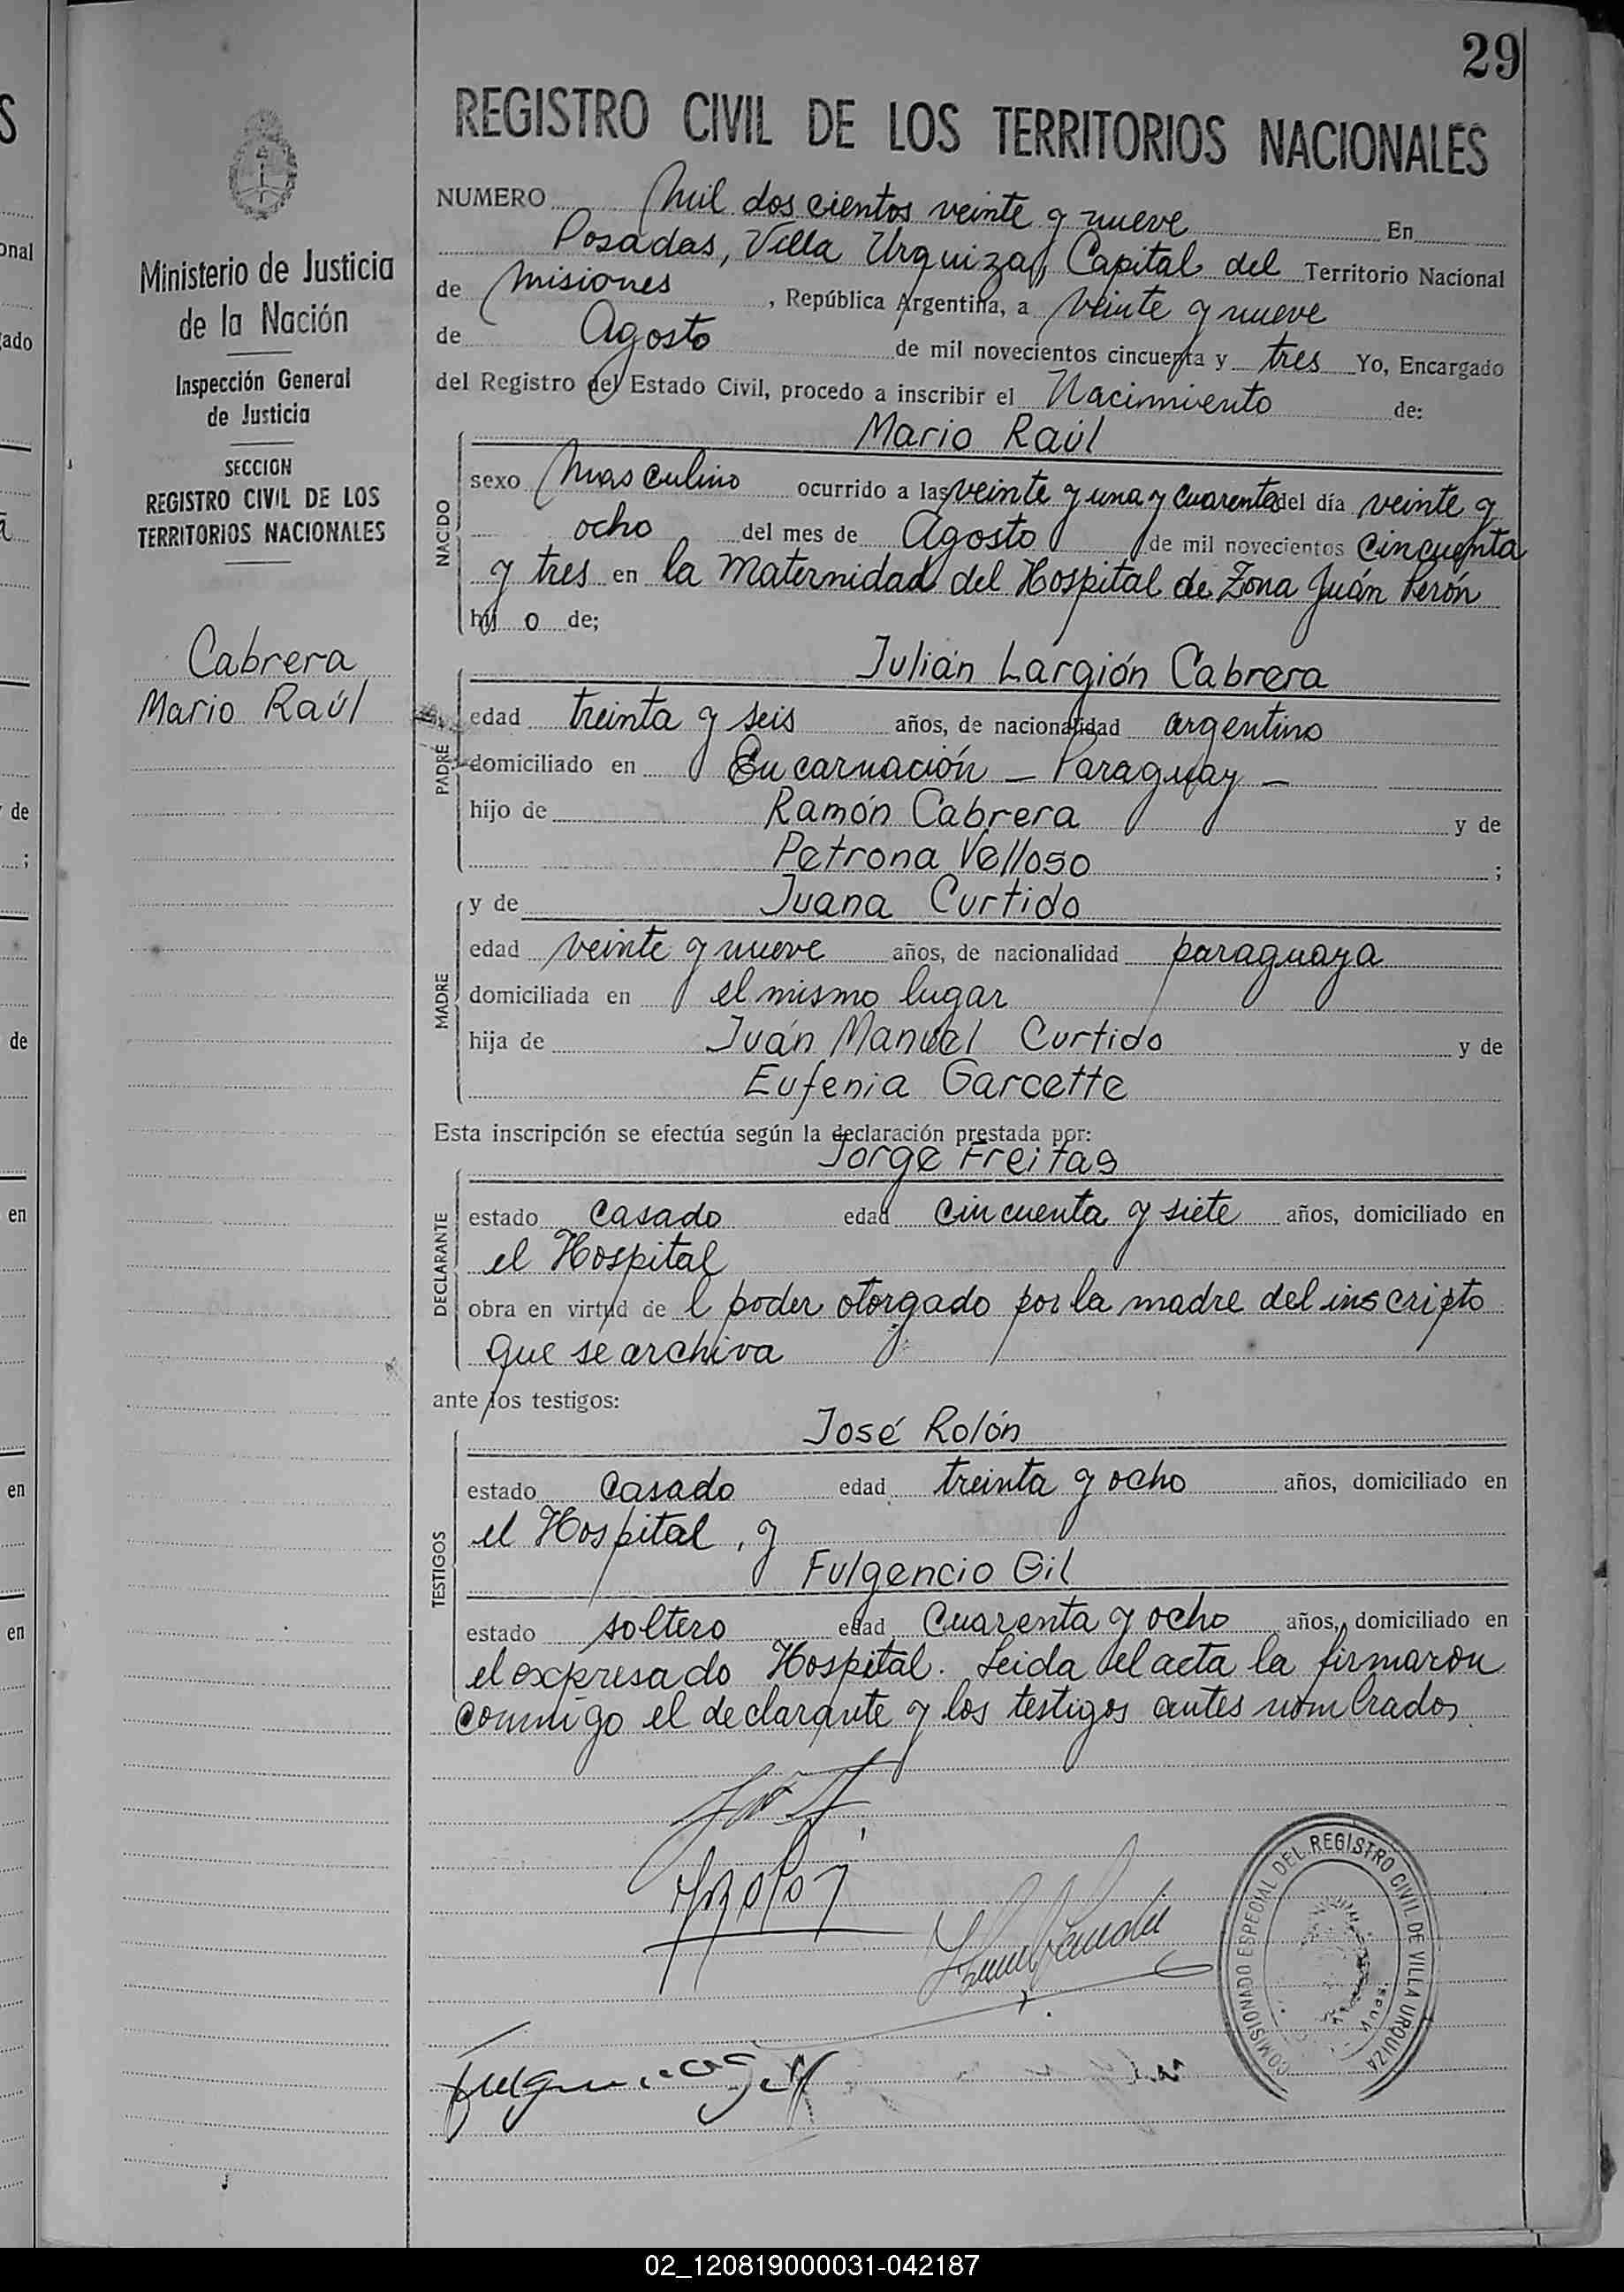 29
REGISTRO CIVIL DE LOS TERRITORIOS NACIONALES
Ministerio de Justicia
de la Nación
Inspección General
de Justicia
SECCION
REGISTRO CIVIL DE LOS
TERRITORIOS NACIONALES
Cabrera
Mario Raúl
NUMERO Mil dos cientos veinte y nueve En
Posadas, Villa Urquiza, Capital del Territorio Nacional
de Misiones, República Argentina, a veinte y nueve
de Agosto de mil novecientos cincuenta y tres Yo, Encargado
del Registro del Estado Civil, procedo a inscribir el Nacimiento de:
NACIDO
Mario Raúl
sexo Masculino ocurrido a las veinte y una y cuarenta del día veinte y
ocho del mes de Agosto de mil novecientos cincuenta
y tres en la Maternidad del Hospital de Zona Juán Perón
hij o de;
PADRE
Julián Largión Cabrera
edad treinta y seis años, de nacionalidad argentino
domiciliado en Encarnación - Paraguay -
hijo de Ramón Cabrera y de
Petrona Velloso ;
MADRE
y de Juana Curtido
edad veinte y nueve años, de nacionalidad paraguaya
domiciliada en el mismo lugar
hija de Juán Manuel Curtido y de
Eufenia Garcette
Esta inscripción se efectúa según la declaración prestada por:
DECLARANTE
Jorge Freitas
estado casado edad cincuenta y siete años, domiciliado en
el Hospital
obra en virtud de l poder otorgado por la madre del inscripto
que se archiva
ante los testigos:
TESTIGOS
José Rolón
estado casado edad treinta y ocho años, domiciliado en
el Hospital, y
Fulgencio Gil
estado soltero edad cuarenta y ocho años, domiciliado en
el expresado Hospital. Leida el acta la firmaron
conmigo el declarante y los testigos antes nombrados
COMISIONADO ESPECIAL DEL REGISTRO CIVIL DE VILLA URQUIZA
02_120819000031-042187